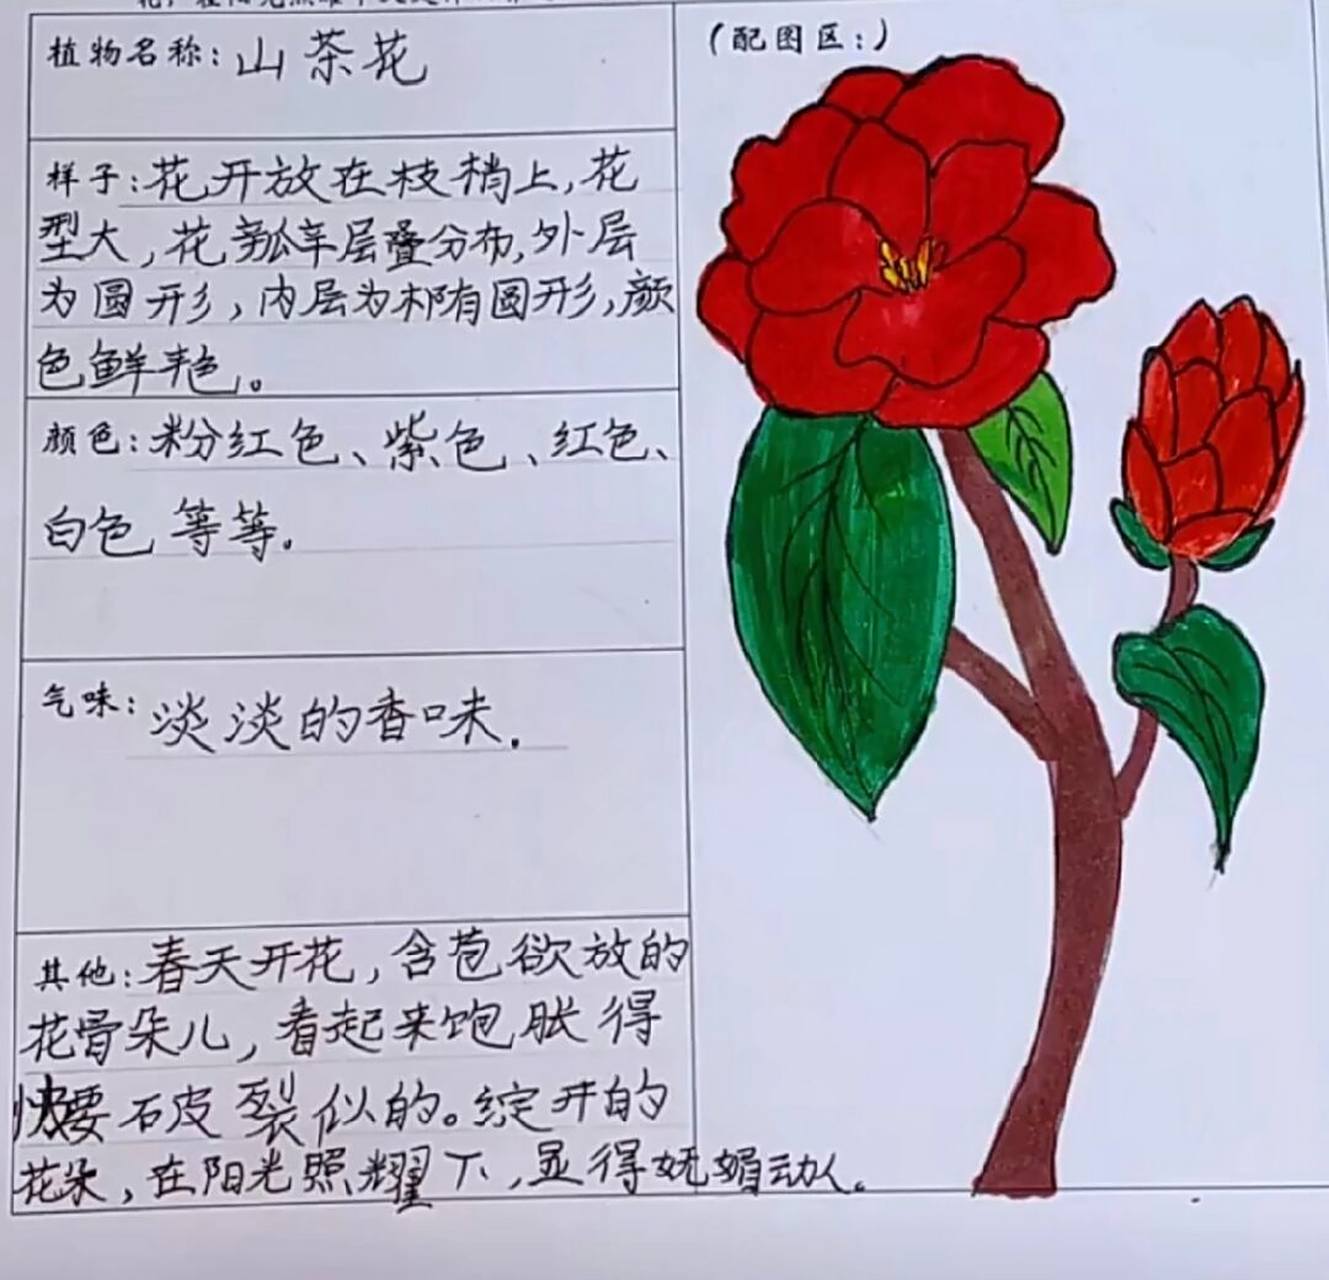 植物名称：山茶花
（配图区：）
样子：花开放在枝梢上，花
型大，花瓣层叠分布，外层
为圆形，内层为椭圆形，颜
色鲜艳。
颜色：粉红色、紫色、红色、
白色等等.
气味：淡淡的香味.
其他：春天开花，含苞欲放的
花骨朵儿，看起来饱胀得
快要破裂似的。绽开的
花朵，在阳光照耀下，显得妩媚动人。